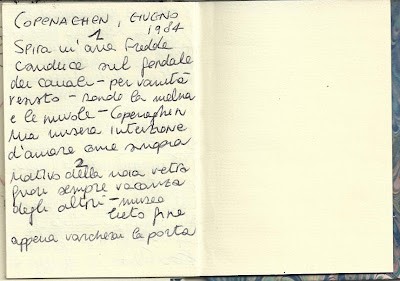 COPENAGHEN, GIUGNO
1984
1
Spira un'aria fredda
conduce sul fondale
dei canali - per vanità
resisto - ronde la
e le nuvole - Copenaghen
Mia misera intenzione
d'amore ame
2
motivo della noia vetra
fuori sempre vacanza
degli altri - museo
lieto fine
appena varcherai la porta